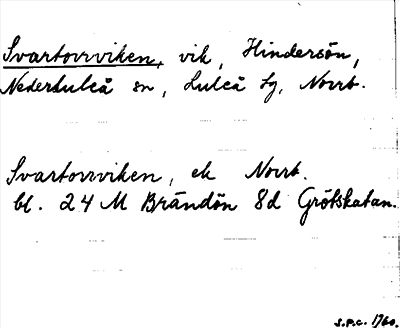 Svartorrviken, vik, Hindersön,
Nederluleå sn, Luleå tg, Norrb.
Svartorrviken, ek Norrb.
bl. 24 M Brändön 8d Gråtskatan.
S.P.C. 1760.